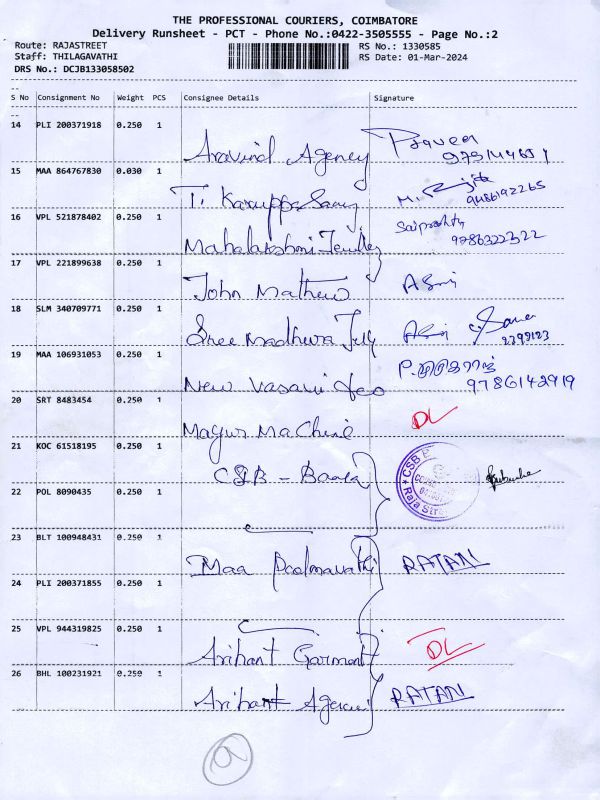 THE PROFESSIONAL COURIERS, COIMBATORE
Delivery Runsheet - PCT - Phone No.:0422-3505555 - Page No.:2
Route: RAJASTREET RS No.: 1330585
Staff: THILAGAVATHI RS Date: 01-Mar-2024
DRS No.: DCJB133058502
S No Consignment No Weight PCS Consignee Details Signature
14 PLI 200371918 0.250 1
Aravind Agency Praveen
15 MAA 864767830 0.030 1
T. Karuppasamy 9486192265
16 VPL 521878402 0.250 1
Mahalakshmi 9786322322
17 VPL 221899638 0.250 1
John Mathew
18 SLM 340709771 0.250 1
Sree Madhwa
19 MAA 106931053 0.250 1
New Vasavi 9786142919
20 SRT 8483454 0.250 1
Machine DL
21 KOC 61518195 0.250 1
CSB - Bank CSB
Raja Str
22 POL 8090435 0.250 1
23 BLT 100948431 0.250 1
Maa Padmavathi RATAN
24 PLI 200371855 0.250 1
25 VPL 944319825 0.250 1
Arihant Garment DL
26 BHL 100231921 0.250 1
Arihant Agencies RATAN